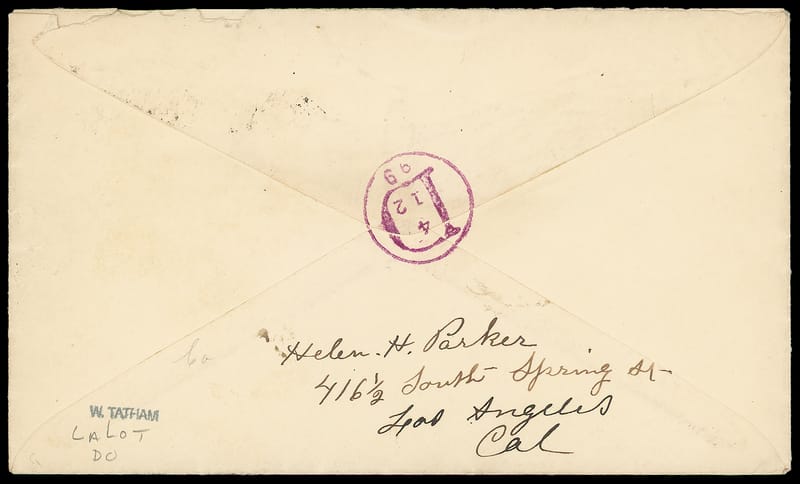 Helen. H. Parker
416½ South Spring St
Los Angeles
Cal
W. TATHAM
LALOT
DO